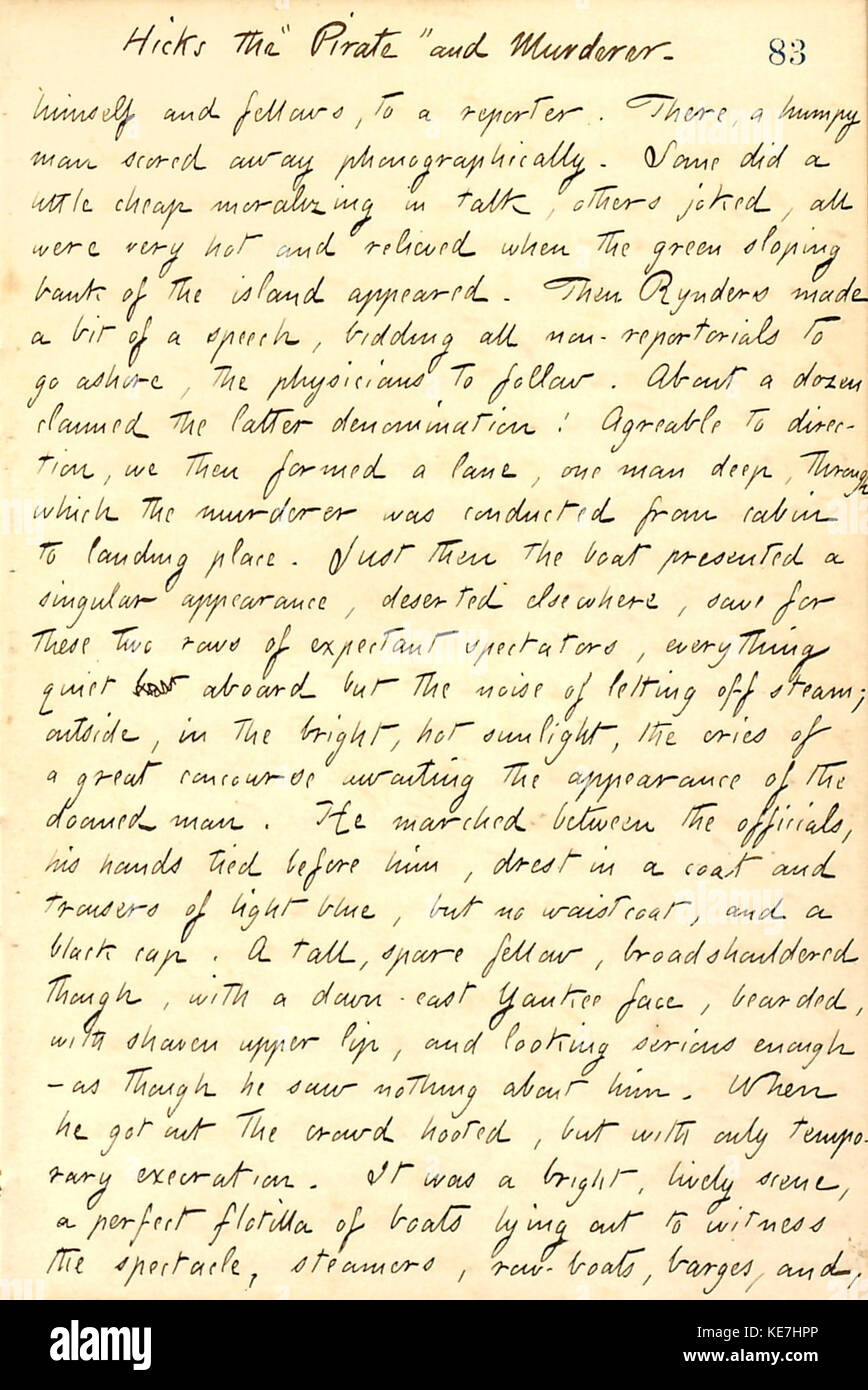 Hicks the "Pirate" and Murderer.
83
himself and fellows, to a reporter. There, a humpy
man scored away phonographically. Some did a
little cheap moralizing in talk, others joked, all
were very hot and relieved when the green sloping
bank of the island appeared. Then Rynders made
a bit of a speech, bidding all non-reportorials to
go ashore, the physicians to follow. About a dozen
claimed the latter denomination! Agreable to direc-
tion, we then formed a lane, one man deep, through
which the murderer was conducted from cabin
to landing place. Just then the boat presented a
singular appearance, deserted elsewhere, save for
these two rows of expectant spectators, everything
quiet aboard but the noise of letting off steam;
outside, in the bright, hot sunlight, the cries of
a great concourse awaiting the appearance of the
doomed man. He marched between the officials,
his hands tied before him, drest in a coat and
trousers of light blue, but no waistcoat, and a
black cap. A tall, spare fellow, broadshouldered
though, with a down-east Yankee face, bearded,
with shaven upper lip, and looking serious enough
- as though he saw nothing about him. When
he got out the crowd hooted, but with only tempo-
rary execration. It was a bright, lively scene,
a perfect flotilla of boats lying out to witness
the spectacle, steamers, row-boats, barges, and,
alamy
Image ID: KE7HPP
www.alamy.com